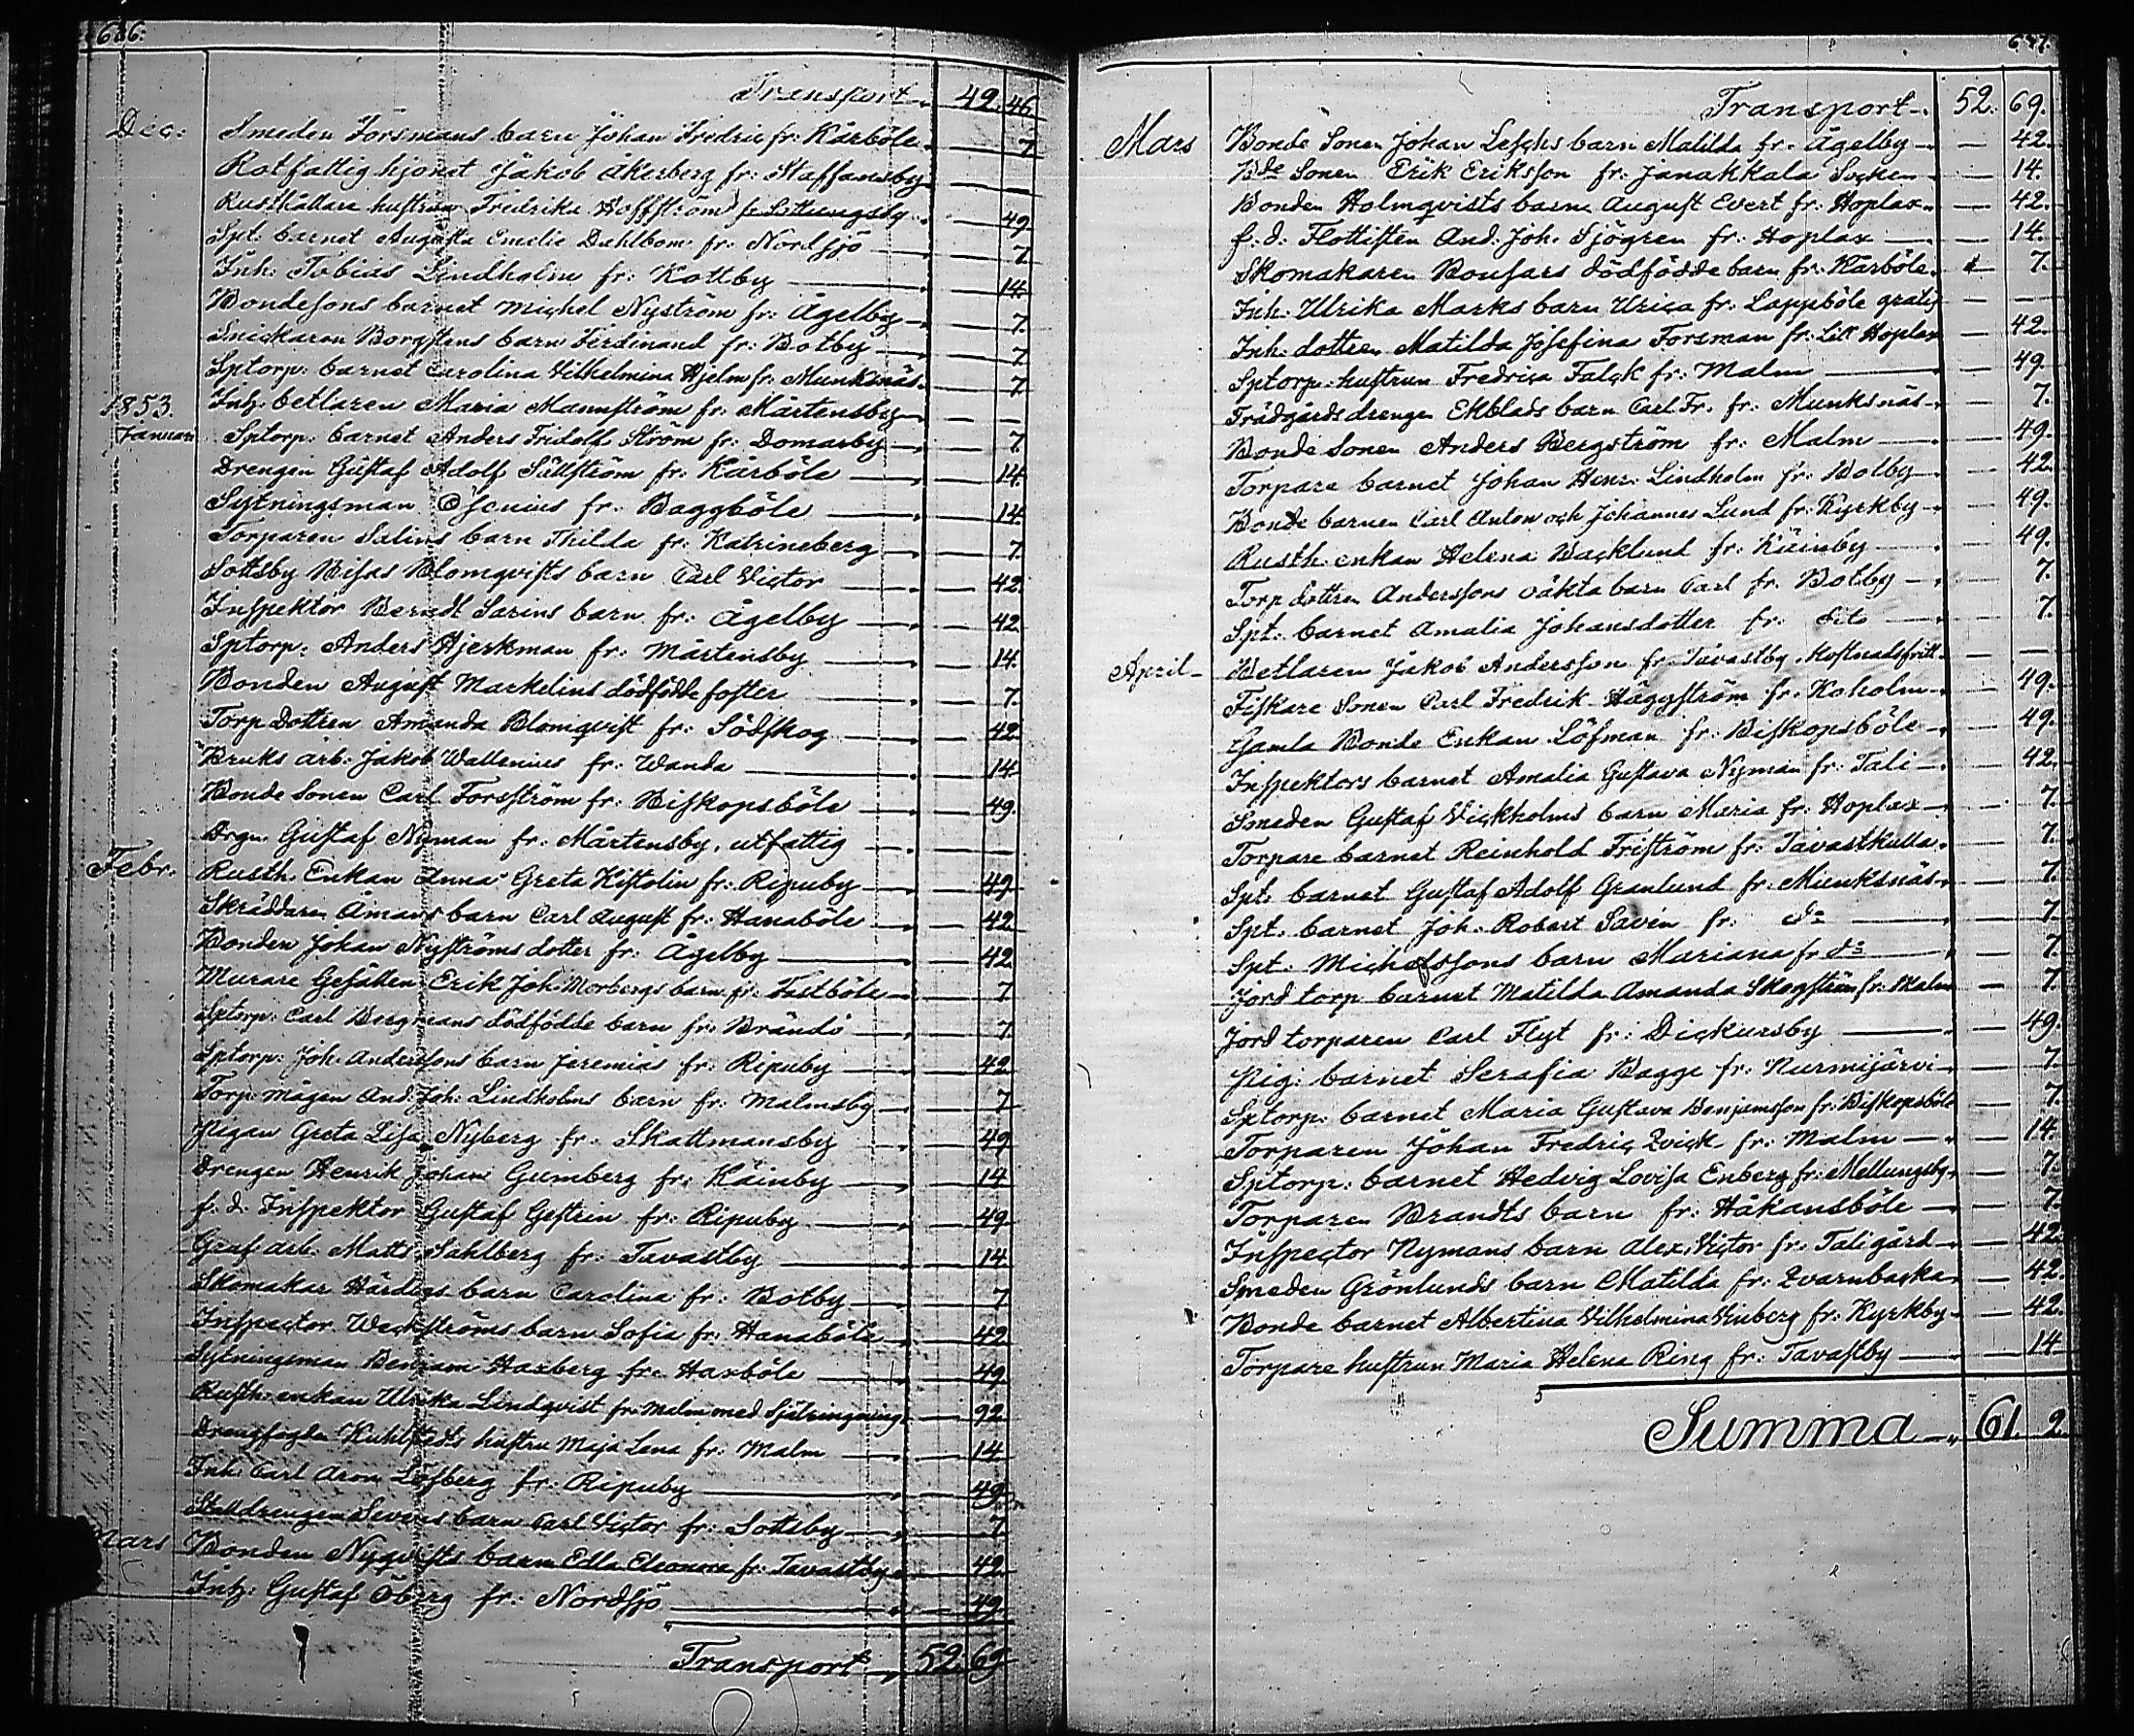 686.
Transport 49. 46.
Dec: Smeden Forsmans barn Johan Fredric fr: Kårböle — 7.
Rotfattig hjonet Jakob Åkerberg fr: Staffansby —
Rusthållare hustrun Fredrika Hoffström fr. Sottungsby — 49
Spt: barnet Augusta Emelie Dahlbom fr: Nordsjö — 7
Inh: Tobias Lindholm fr: Kottby — 14.
Bondesons barnet Michel Nyström fr: Ågelby — 7.
Snickaren Borgstens barn Ferdinand fr: Botby — 7
Sptorp: barnet Carolina Vilhelmina Hjelm fr: Munksnäs — 7
1853. Inh: betlaren Maria Mannström fr: Mårtensby — —
Januari Sptorp: barnet Anders Fridolf Ström fr: Domarby — 7.
Drengen Gustaf Adolf Sällström fr: Kårböle — 14.
Sytningsman fr: Baggböle — 14.
Torparen Salins barn Thilda fr: Katrineberg — 7.
Sottsby Bisas Blomqvists barn Carl Victor — 42.
Inspektor Berndt Sarins barn fr: Ågelby — 42
Sptorp: Anders Hjerkman fr: Mårtensby — 14.
Bonden August Markelins dödfödde foster — 7.
Torp Dottren Amanda Blomqvist fr: Södskog — 42
Bruks arb: Jakob Wallenius fr: Wanda — 14
Bonde Sonen Carl Forsström fr: Biskopsböle — 49.
Drgn: Gustaf Nyman fr: Mårtensby, utfattig — —
Febr: Rusth: Enkan Anna Greta Kistolin fr: Ripuby — 49
Skräddaren Åmans barn Carl August fr: Hanaböle — 42
Bonden Johan Nyströms dotter fr: Ågelby — 42
Murare Gesällen Erik Joh: Morbergs barn fr: Fastböle — 7
Sptorp: Carl Bergmans dödfödde barn fr: Brändö — 7.
Sptorp: Joh: Anderssons barn Jeremias fr: Ripuby — 42
Torp: mågen And: Joh: Lindholms barn fr: Malmsby — 7
Pigan Greta Lisa Nyberg fr: Skattmansby — 49
Drengen Henrik Johan Gumberg fr: Käinby — 14
f. d. Inspektor Gustaf Gestrin fr: Ripuby — 49
Graf arb: Matts Sahlberg fr: Tavastby — 14
Skomakar Hårdens barn Carolina fr: Botby — 7
Inspector Weckströms barn Sofia fr: Hanaböle — 42
Sytningsman Benjam Haxberg fr: Haxböle — 49
Rusth: enkan Ulrika Lindqvist fr: Malm med Själringning — 92
Drengfogden Kuhlstedts hustru Maja Lena fr: Malm — 14
Inh: Carl Aron Löfberg fr: Ripuby — 49
Stalldrengen Sevens barn Carl Victor fr: Sottsby — 7
Mars Bonden Nyqvists barn Edla Eleonora fr: Tavastby — 42
Inh: Gustaf Öberg fr: Nordsjö — 49
Transport 52. 69
687.
Transport 52. 69.
Mars Bonde Sonen Johan Leschs barn Matilda fr: Ågelby — 42.
Bde Sonen Erik Eriksson fr: Janakkala Socken — 14.
Bonden Holmqvists barn August Evert fr: Hoplax — 42.
f: d: Flottisten And: Joh. Sjögren fr: Hoplax — 14.
Skomakaren Bonsars dödfödde barn fr: Kårböle — 7.
Inh: Ulrika Marks barn Urica fr: Lappböle gratis — —
Inh: dottren Matilda Josefina Forsman fr: Lill Hoplax — 42.
Sptorp: hustrun Fredrica Falck fr: Malm — 49.
Trädgårds drengen Ekblads barn Carl Fr. fr: Munksnäs — 7.
Bonde sonen Anders Bergström fr: Malm — 49.
Torpare barnet Johan Henr: Lindholm fr: Botby — 42
Bonde barnen Carl Anton och Johannes Lund fr: Kyrkby — 49.
Rusth: enkan Helena Backlund fr: Käinby — 49.
Torp dottren Anderssons oäkta barn Carl fr: Botby — 7.
Spt: barnet Amalia Johansdotter fr: dito — 7.
April Betlaren Jakob Andersson fr: Tavastby, kostnadsfritt — —
Fiskare Sonen Carl Fredrik Häggström fr: Koholm — 49.
Gamla Bonde Enkan Löfman fr: Biskopsböle — 49.
Inspektors barnet Amalia Gustava Nyman fr: Tali — 42.
Smeden Gustaf Vickholms barn Maria fr: Hoplax — 7.
Torpare barnet Reinhold Friström fr: Tavastkulla — 7.
Spt: barnet Gustaf Adolf Granlund fr: Munksnäs — 7.
Spt: barnet Joh: Robert Savén fr: do — 7.
Spt: Michelssons barn Mariana fr do — 7.
Jord torp barnet Matilda Amanda Skogström fr: Malm — 7.
Jord torparen Carl Flyt fr: Dickursby — 49.
Pig: barnet Serafia Bagge fr: Nurmijärvi — 7.
Sptorp: barnet Maria Gustava Benjamsson fr: Biskopsböle — 7.
Torparen Johan Fredric Qvick fr: Malm — 14.
Sptorp: barnet Hedvig Lovisa Enberg fr: Mellungsby — 7.
Torparen Brandts barn fr: Håkansböle — 7.
Inspector Nymans barn Alex: Victor fr: Tali gård — 42
Smeden Grönlunds barn Matilda fr: Qvarnbacka — 42.
Bonde barnet Albertina Vilhelmina Vinberg fr: Kyrkby — 42.
Torpare hustrun Maria Helena Ring fr: Tavastby — 14
Summa 61. 2.